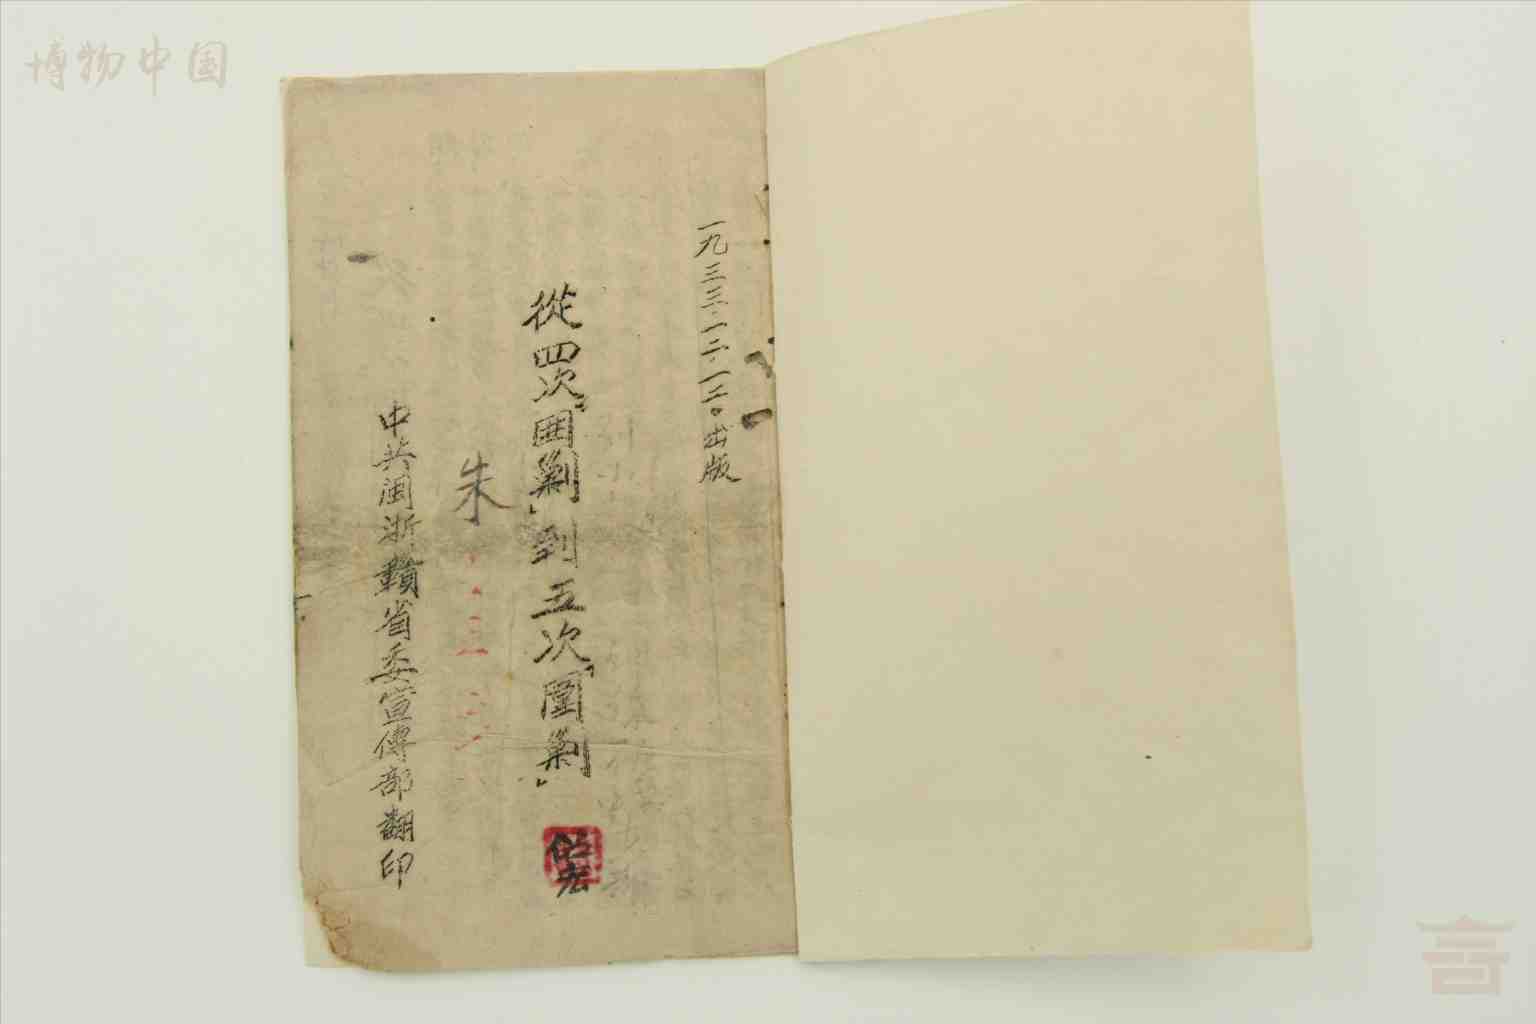 博物中国
一九三三·一二·一二。出版
從四次“囲剿”到五次“圍剿”
伯宏
朱
中共闽浙贛省委宣傳部翻印